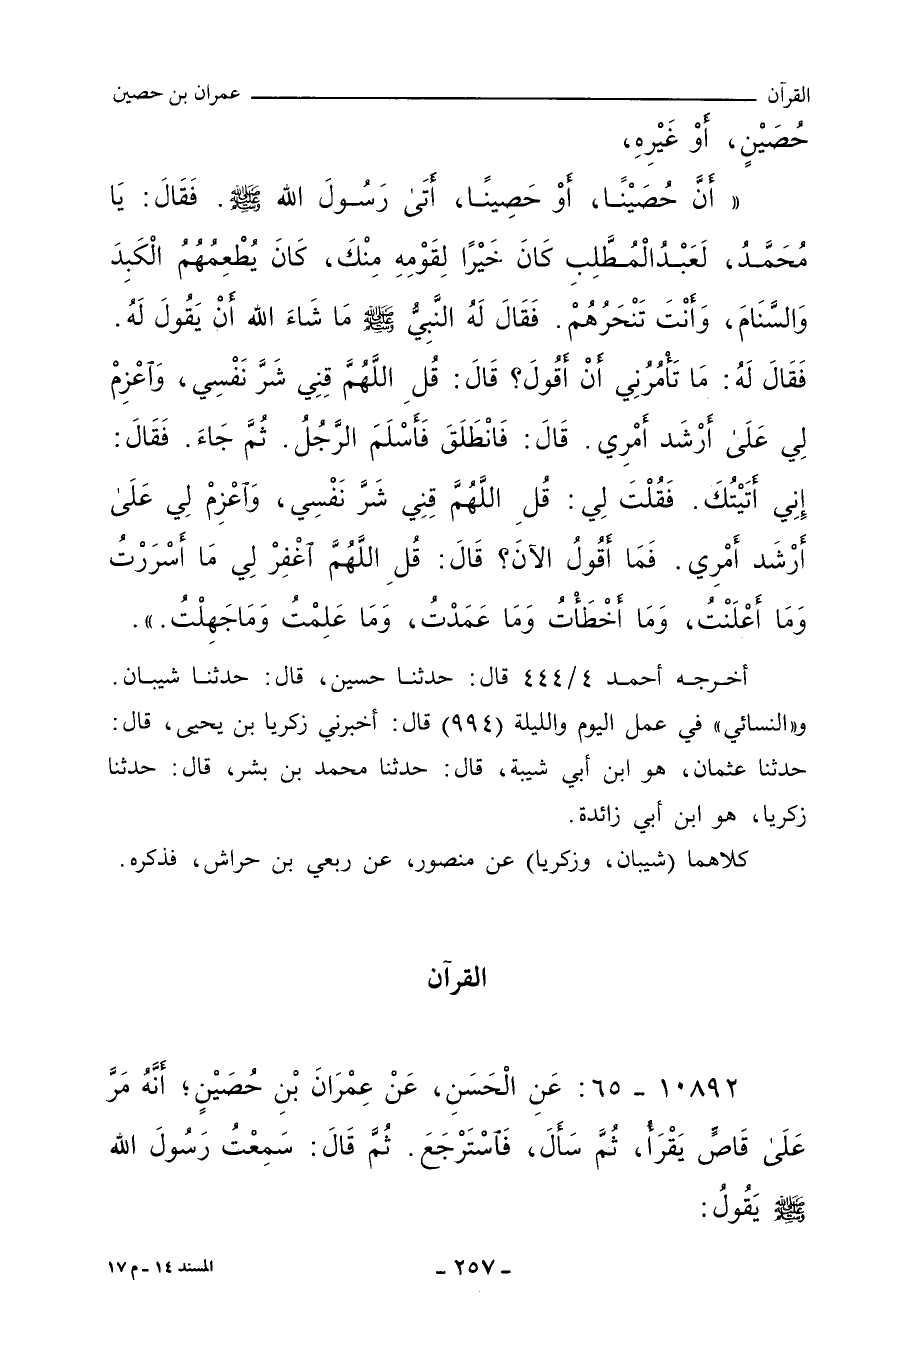 القرآن ــــــــــــــــــــ عمران بن حصين
حُصَيْنٍ، أَوْ غَيْرِهِ،
« أَنَّ حُصَيْنًـا، أَوْ حَصِينًـا، أَتَىٰ رَسُـولَ الله ﷺ. فَقَالَ: يَا
مُحَمَّـدُ، لَعَبْـدُالْمُـطَّلِبِ كَانَ خَيْرًا لِقَوْمِهِ مِنْكَ، كَانَ يُطْعِمُهُمُ الْكَبِدَ
وَالسَّنَامَ، وَأَنْتَ تَنْحَرُهُمْ. فَقَالَ لَهُ النَّبِيُّ ﷺ مَا شَاءَ الله أَنْ يَقُولَ لَهُ.
فَقَالَ لَهُ: مَا تَأْمُرُنِي أَنْ أَقُولَ؟ قَالَ: قُلِ اللَّهُمَّ قِنِي شَرَّ نَفْسِي، وَٱعْزِمْ
لِي عَلَىٰ أَرْشَدِ أَمْرِي. قَالَ: فَانْطَلَقَ فَأَسْلَمَ الرَّجُلُ. ثُمَّ جَاءَ. فَقَالَ:
إِنِي أَتَيْتُكَ. فَقُلْتَ لِي: قُلِ اللَّهُمَّ قِنِي شَرَّ نَفْسِي، وَٱعْزِمْ لِي عَلَىٰ
أَرْشَدِ أَمْرِي. فَمَا أَقُولُ الآنَ؟ قَالَ: قُلِ اللَّهُمَّ ٱغْفِرْ لِي مَا أَسْرَرْتُ
وَمَا أَعْلَنْتُ، وَمَا أَخْطَأْتُ وَمَا عَمَدْتُ، وَمَا عَلِمْتُ وَمَاجَهِلْتُ.».
أخـرجـه أحمـد ٤/٤٤٤ قال: حدثنـا حسين، قال: حدثنـا شيبـان.
و«النسائي» في عمل اليوم والليلة (٩٩٤) قال: أخبرني زكريا بن يحيى، قال:
حدثنا عثمان، هو ابن أبي شيبة، قال: حدثنا محمد بن بشر، قال: حدثنا
زكريا، هو ابن أبي زائدة.
كلاهما (شيبان، وزكريا) عن منصور، عن ربعي بن حراش، فذكره.
القرآن
١٠٨٩٢ - ٦٥: عَنِ الْحَسَنِ، عَنْ عِمْرَانَ بْنِ حُصَيْنٍ؛ أَنَّهُ مَرَّ
عَلَىٰ قَاصٍّ يَقْرَأُ، ثُمَّ سَأَلَ، فَٱسْتَرْجَعَ. ثُمَّ قَالَ: سَمِعْتُ رَسُولَ الله
ﷺ يَقُولُ:
- ٢٥٧ -
المسند ١٤ - م ١٧